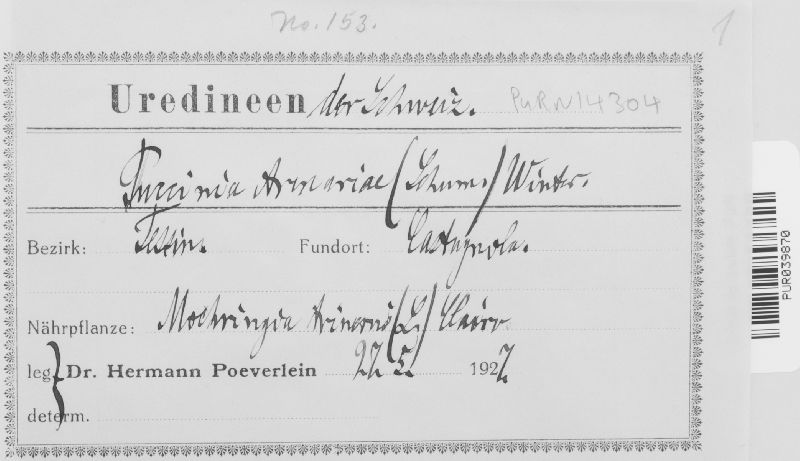 No. 153.
1
Uredineen der Schweiz. PURN14304
Puccinia Arenariae (Schum.) Winter.
Bezirk: Tessin. Fundort: Castagnola.
Nährpflanze: Moehringia trinervia (L.) Clairv.
leg. Dr. Hermann Poeverlein 27. 5. 1927
determ.
PUR039870